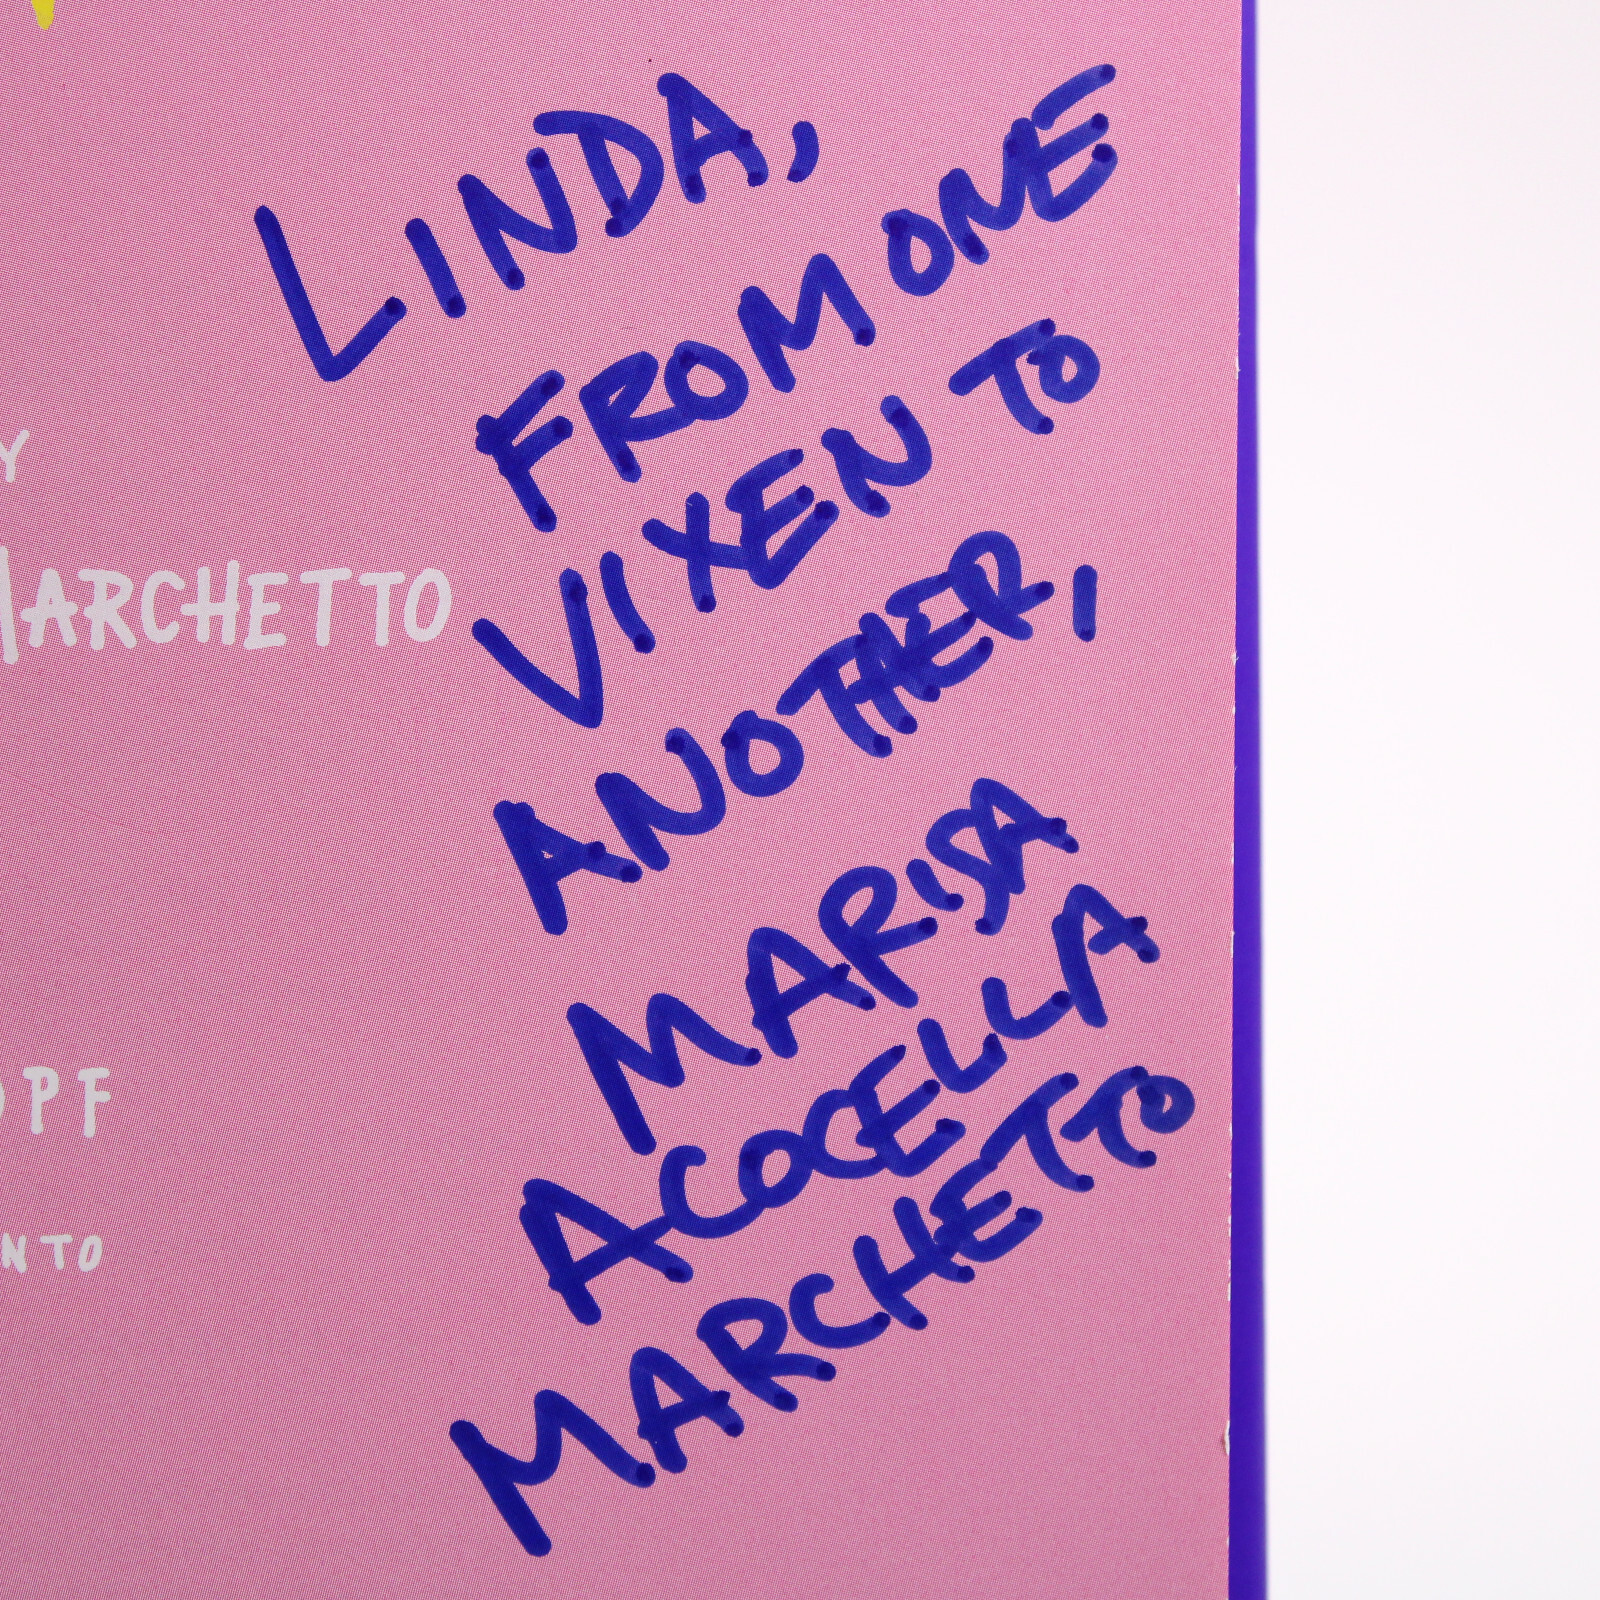 LINDA,
FROM ONE
VIXEN TO
ANOTHER,
MARISA
ACOCELLA
MARCHETTO
Y
MARCHETTO
OPF
NTO